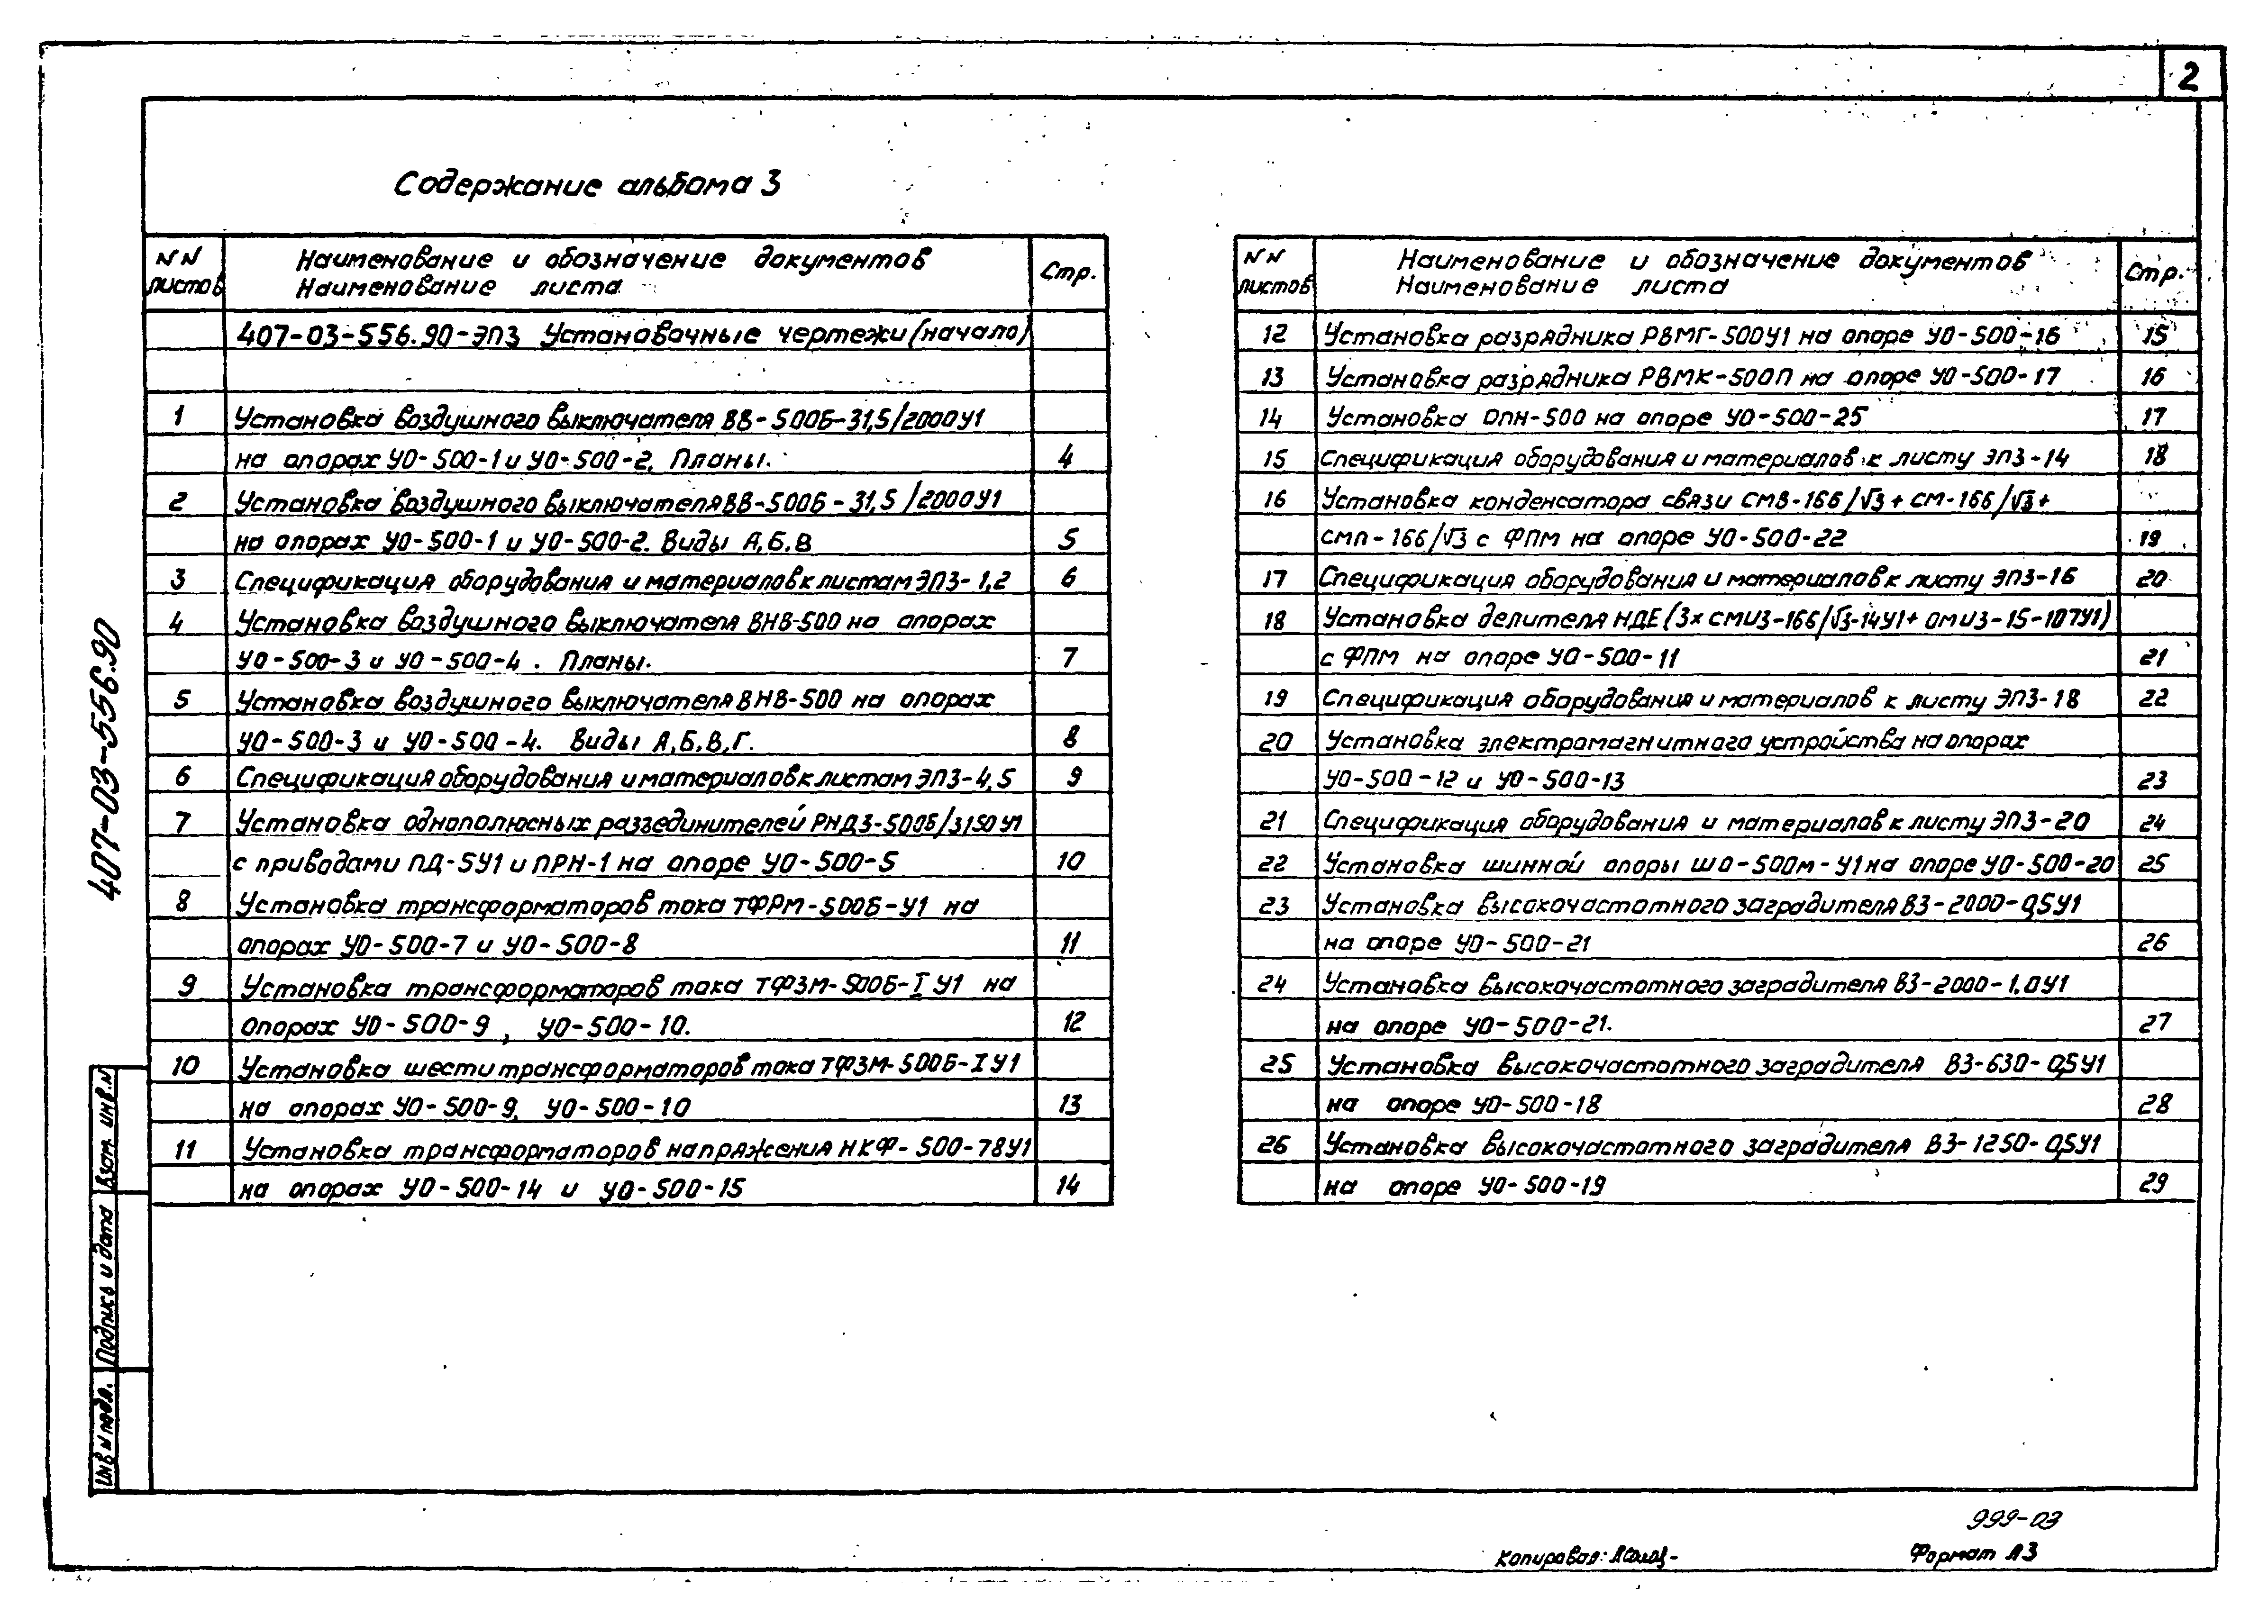 2
Содержание альбома 3
NN листов
Наименование и обозначение документов
Наименование листа
Стр.
407-03-556.90-ЭП3 Установочные чертежи (начало)
1 Установка воздушного выключателя ВВ-500Б-31,5/2000У1
на опорах УО-500-1 и УО-500-2. Планы. 4
2 Установка воздушного выключателя ВВ-500Б-31,5/2000У1
на опорах УО-500-1 и УО-500-2. Виды А,Б,В 5
3 Спецификация оборудования и материалов к листам ЭП3-1,2 6
4 Установка воздушного выключателя ВНВ-500 на опорах
УО-500-3 и УО-500-4. Планы. 7
5 Установка воздушного выключателя ВНВ-500 на опорах
УО-500-3 и УО-500-4. Виды А,Б,В,Г. 8
6 Спецификация оборудования и материалов к листам ЭП3-4,5 9
7 Установка однополюсных разъединителей РНДЗ-500Б/3150 У1
с приводами ПД-5У1 и ПРН-1 на опоре УО-500-5 10
8 Установка трансформаторов тока ТФРМ-500Б-У1 на
опорах УО-500-7 и УО-500-8 11
9 Установка трансформаторов тока ТФЗМ-500Б-I У1 на
опорах УО-500-9, УО-500-10. 12
10 Установка шести трансформаторов тока ТФЗМ-500Б-I У1
на опорах УО-500-9, УО-500-10 13
11 Установка трансформаторов напряжения НКФ-500-78У1
на опорах УО-500-14 и УО-500-15 14
NN листов
Наименование и обозначение документов
Наименование листа
Стр.
12 Установка разрядника РВМГ-500У1 на опоре УО-500-16 15
13 Установка разрядника РВМК-500П на опоре УО-500-17 16
14 Установка ОПН-500 на опоре УО-500-25 17
15 Спецификация оборудования и материалов к листу ЭП3-14 18
16 Установка конденсатора связи СМВ-166/√3+СМ-166/√3+
СМП-166/√3 с ФПМ на опоре УО-500-22 19
17 Спецификация оборудования и материалов к листу ЭП3-16 20
18 Установка делителя НДЕ (3х СМИЗ-166/√3-14У1+ОМИЗ-15-107У1)
с ФПМ на опоре УО-500-11 21
19 Спецификация оборудования и материалов к листу ЭП3-18 22
20 Установка электромагнитного устройства на опорах
УО-500-12 и УО-500-13 23
21 Спецификация оборудования и материалов к листу ЭП3-20 24
22 Установка шинной опоры ШО-500м-У1 на опоре УО-500-20 25
23 Установка высокочастотного заградителя ВЗ-2000-0,5У1
на опоре УО-500-21 26
24 Установка высокочастотного заградителя ВЗ-2000-1,0У1
на опоре УО-500-21. 27
25 Установка высокочастотного заградителя ВЗ-630-0,5У1
на опоре УО-500-18 28
26 Установка высокочастотного заградителя ВЗ-1250-0,5У1
на опоре УО-500-19 29
407-03-556.90
Взам. инв.N
Подпись и дата
Инв N подл.
999-03
Копировал:
Формат А3